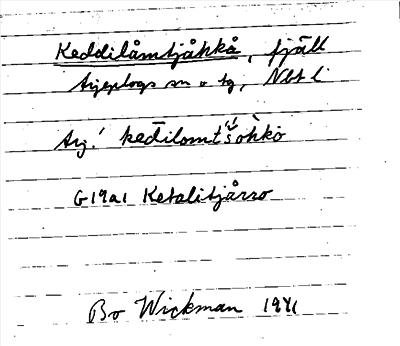 Keddilåmtjåhkå, fjäll
Arjeplogs sn o tg, Nbt l
Arj.! kēdilomtšohko
G19a1 Ketalitjårro
Bo Wickman 1941